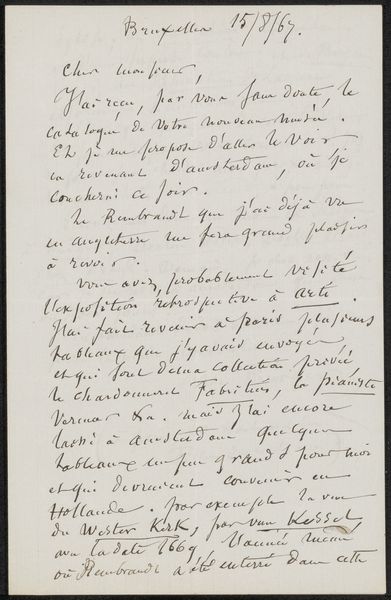 Bruxelles 15/8/67.
Cher monsieur,
J'ai reçu, par vous sans doute, le
catalogue de votre nouveau musée.
Et je me propose d'aller le voir
en revenant d'amsterdam, où je
coucherai ce soir.
Le Rembrandt que j'ai déjà vu
en angleterre me fera grand plaisir
à revoir.
Vous avez probablement visité
l'exposition retrospective à Arti.
J'ai fait revenir à paris plusieurs
tableaux que j'y avais envoyés,
et qui sont de ma collection privée
le chardonneret Fabritius, la pianiste
Vermeer &a. mais j'ai encore
laissé à amsterdam quelques
tableaux un peu grands pour moi
et qui devraient convenir en
Hollande. par exemple la vue
du Wester Kerk, par van Kessel
avec la date 1669 l'année même
où Rembrandt a été enterré dans cette